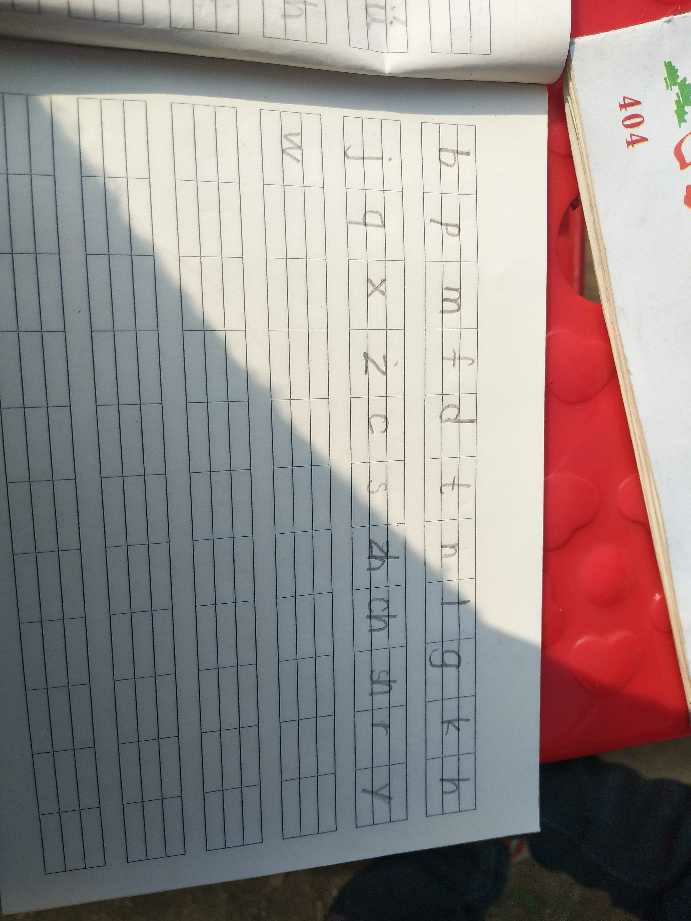 b p m f d t n l g k h
j q x z c s zh ch sh r y
w
404